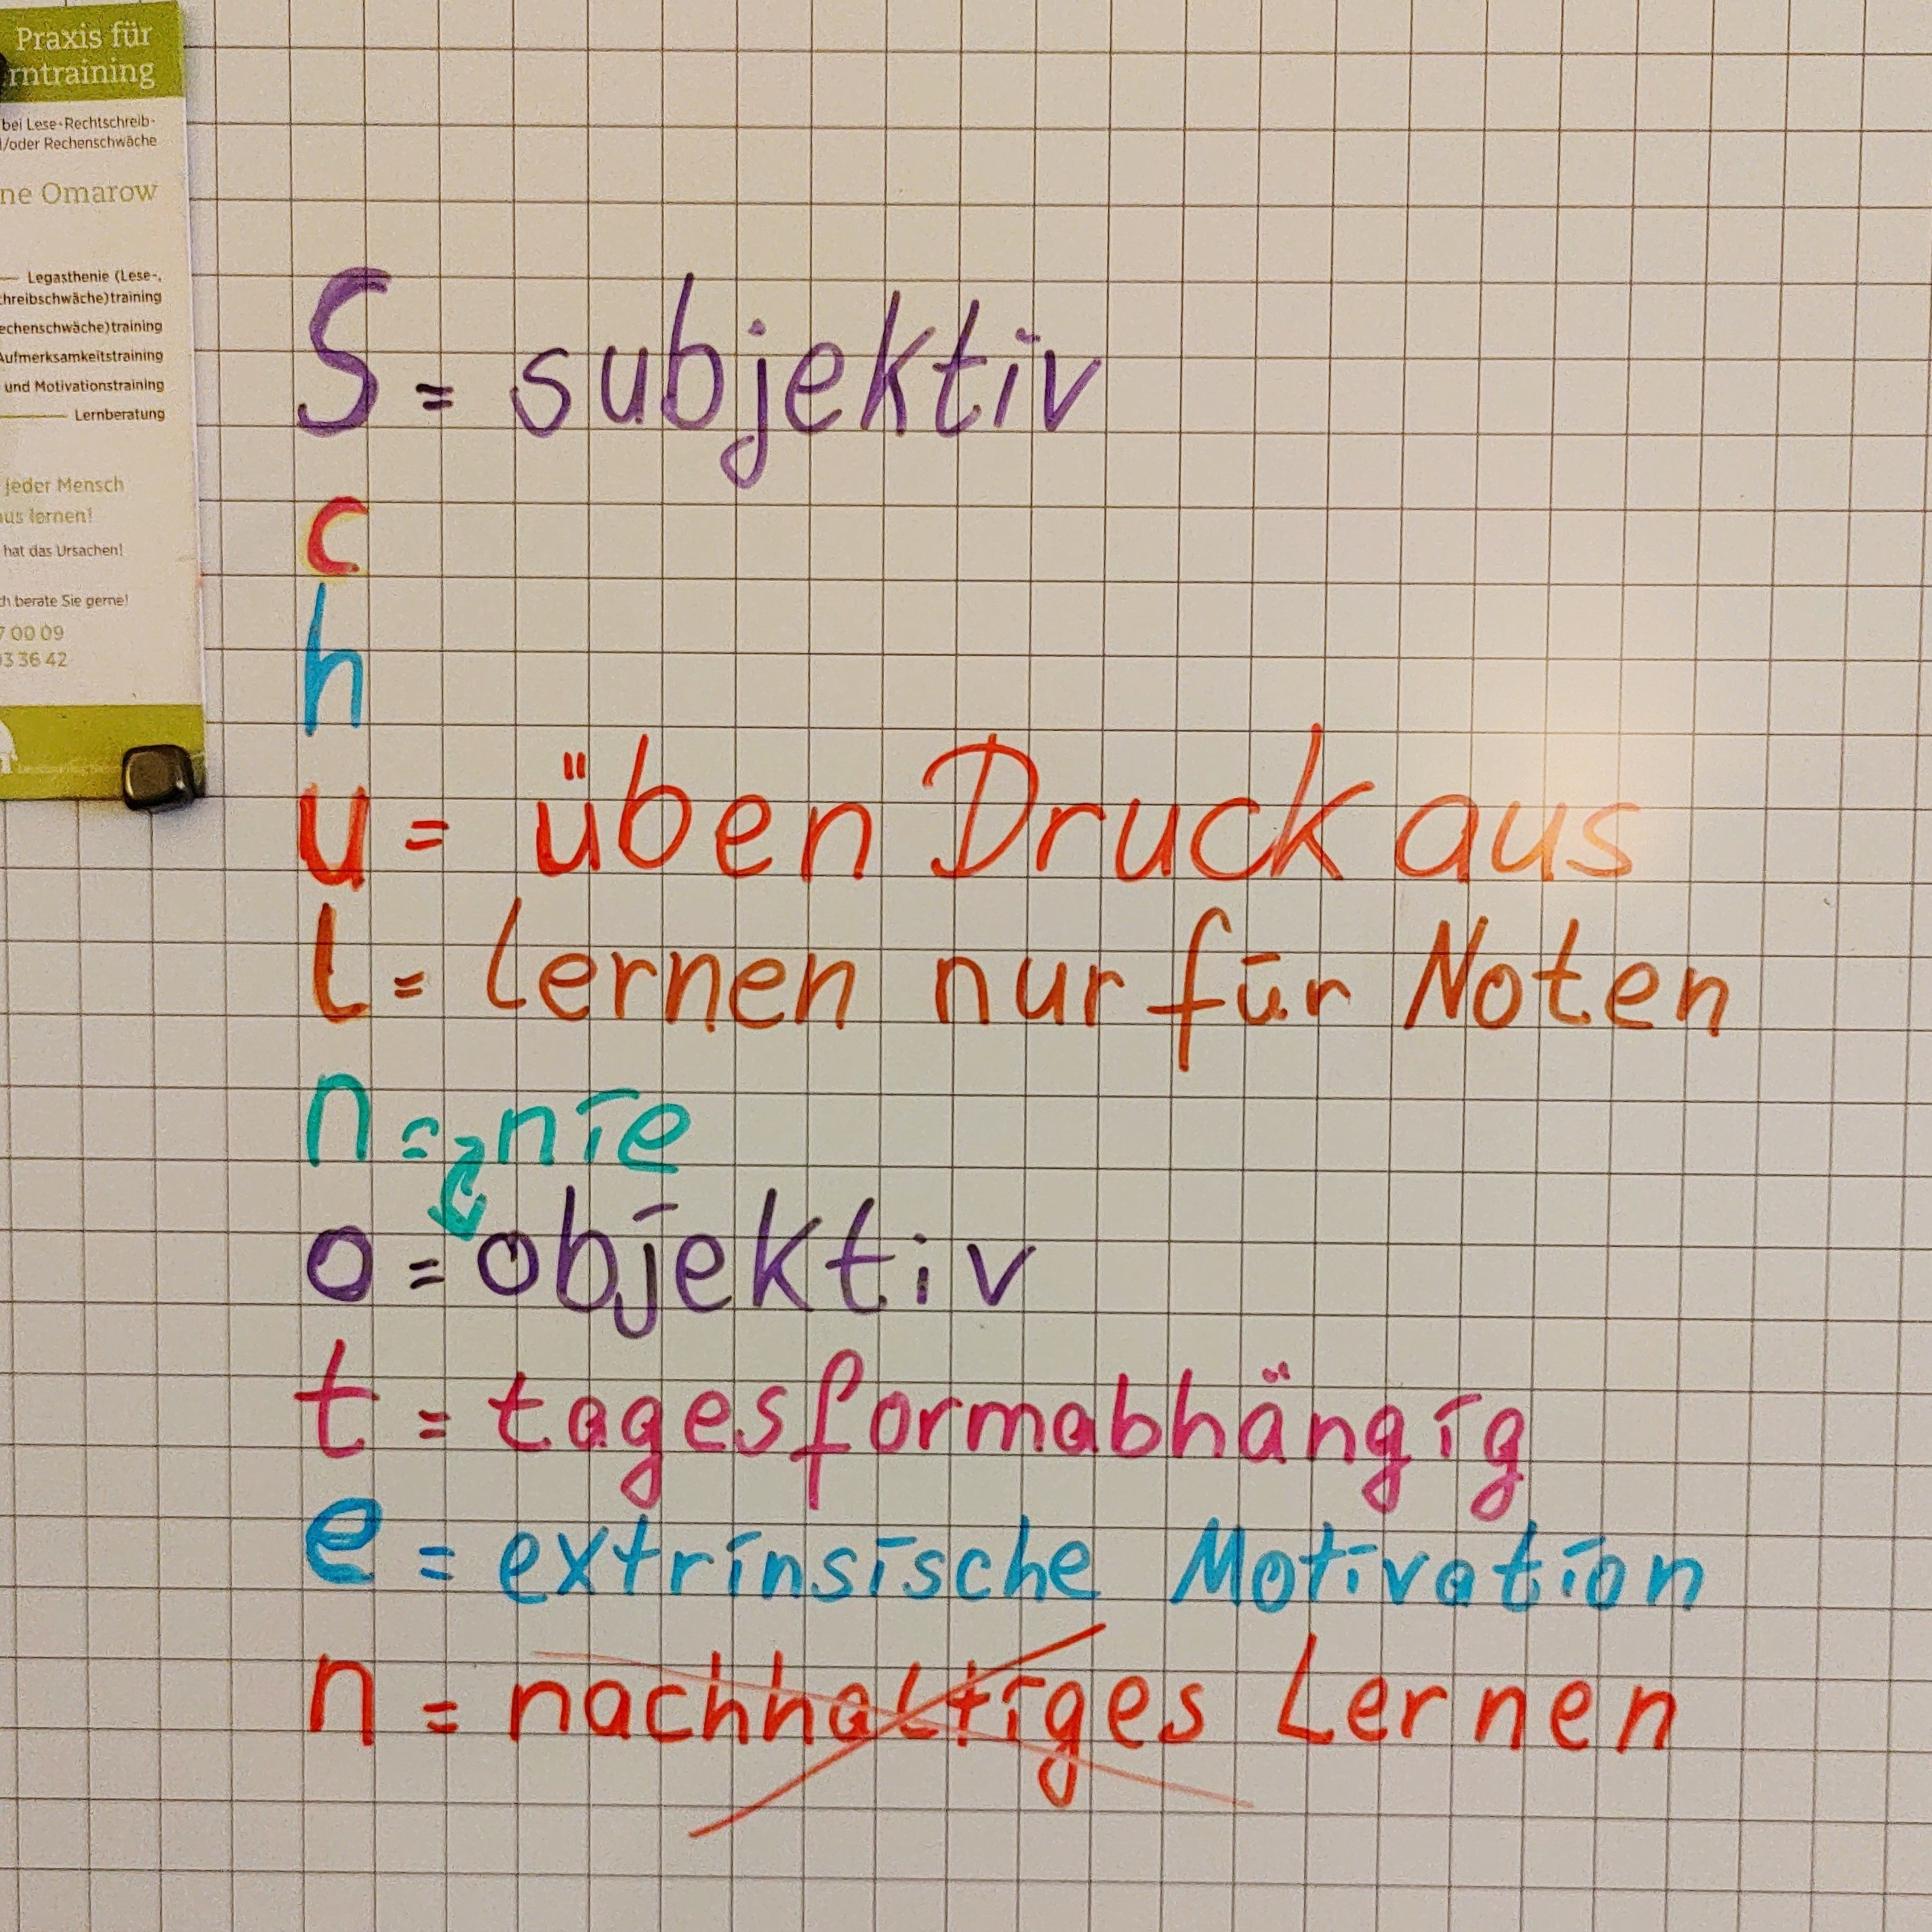 Praxis für
rntraining
bei Lese-Rechtschreib-
/oder Rechenschwäche
ne Omarow
Legasthenie (Lese-,
chreibschwäche)training
echenschwäche)training
Aufmerksamkeitstraining
und Motivationstraining
Lernberatung
jeder Mensch
aus lernen!
hat das Ursachen!
ch berate Sie gerne!
7 00 09
03 36 42
S = subjektiv
c
h
u = üben Druck aus
l = lernen nur für Noten
n = nie
o = objektiv
t = tagesformabhängig
e = extrinsische Motivation
n = nachhaltiges Lernen